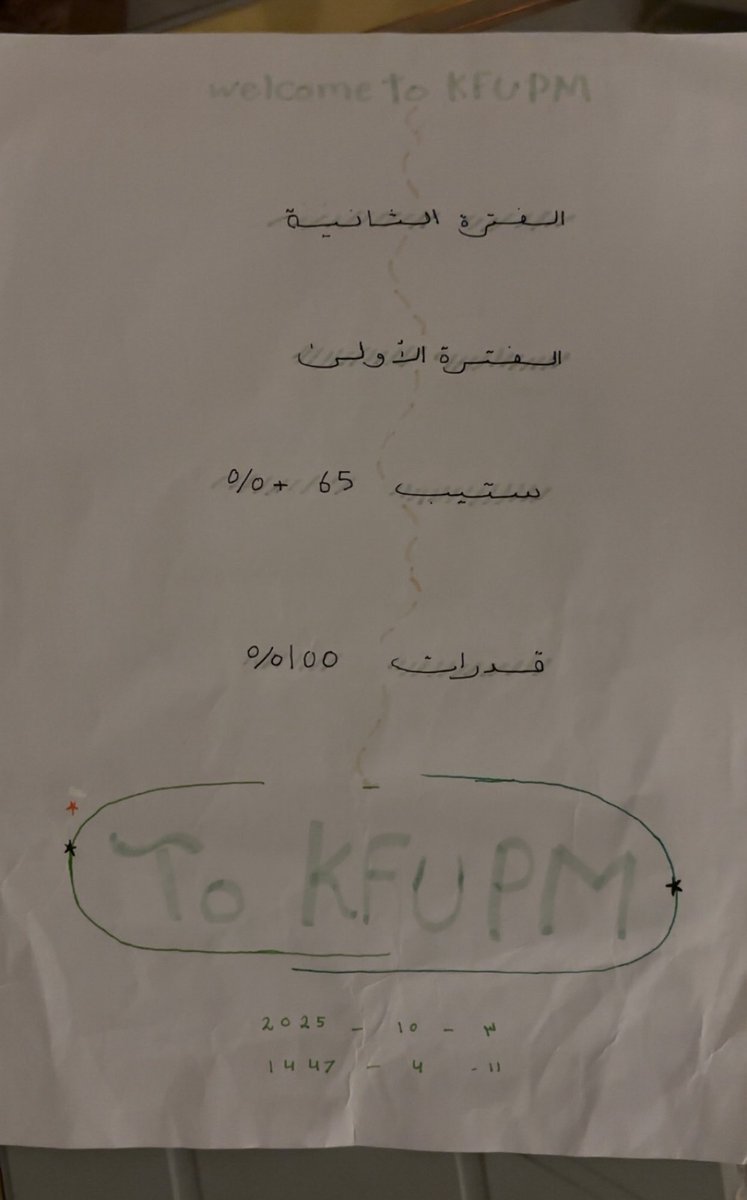 welcome to KFUPM
الفترة الثانية
الفترة الأولى
ستيب 65 +%
قدرات 100%
To KFUPM
2025 - 10 - ٣
1447 - 4 - 11